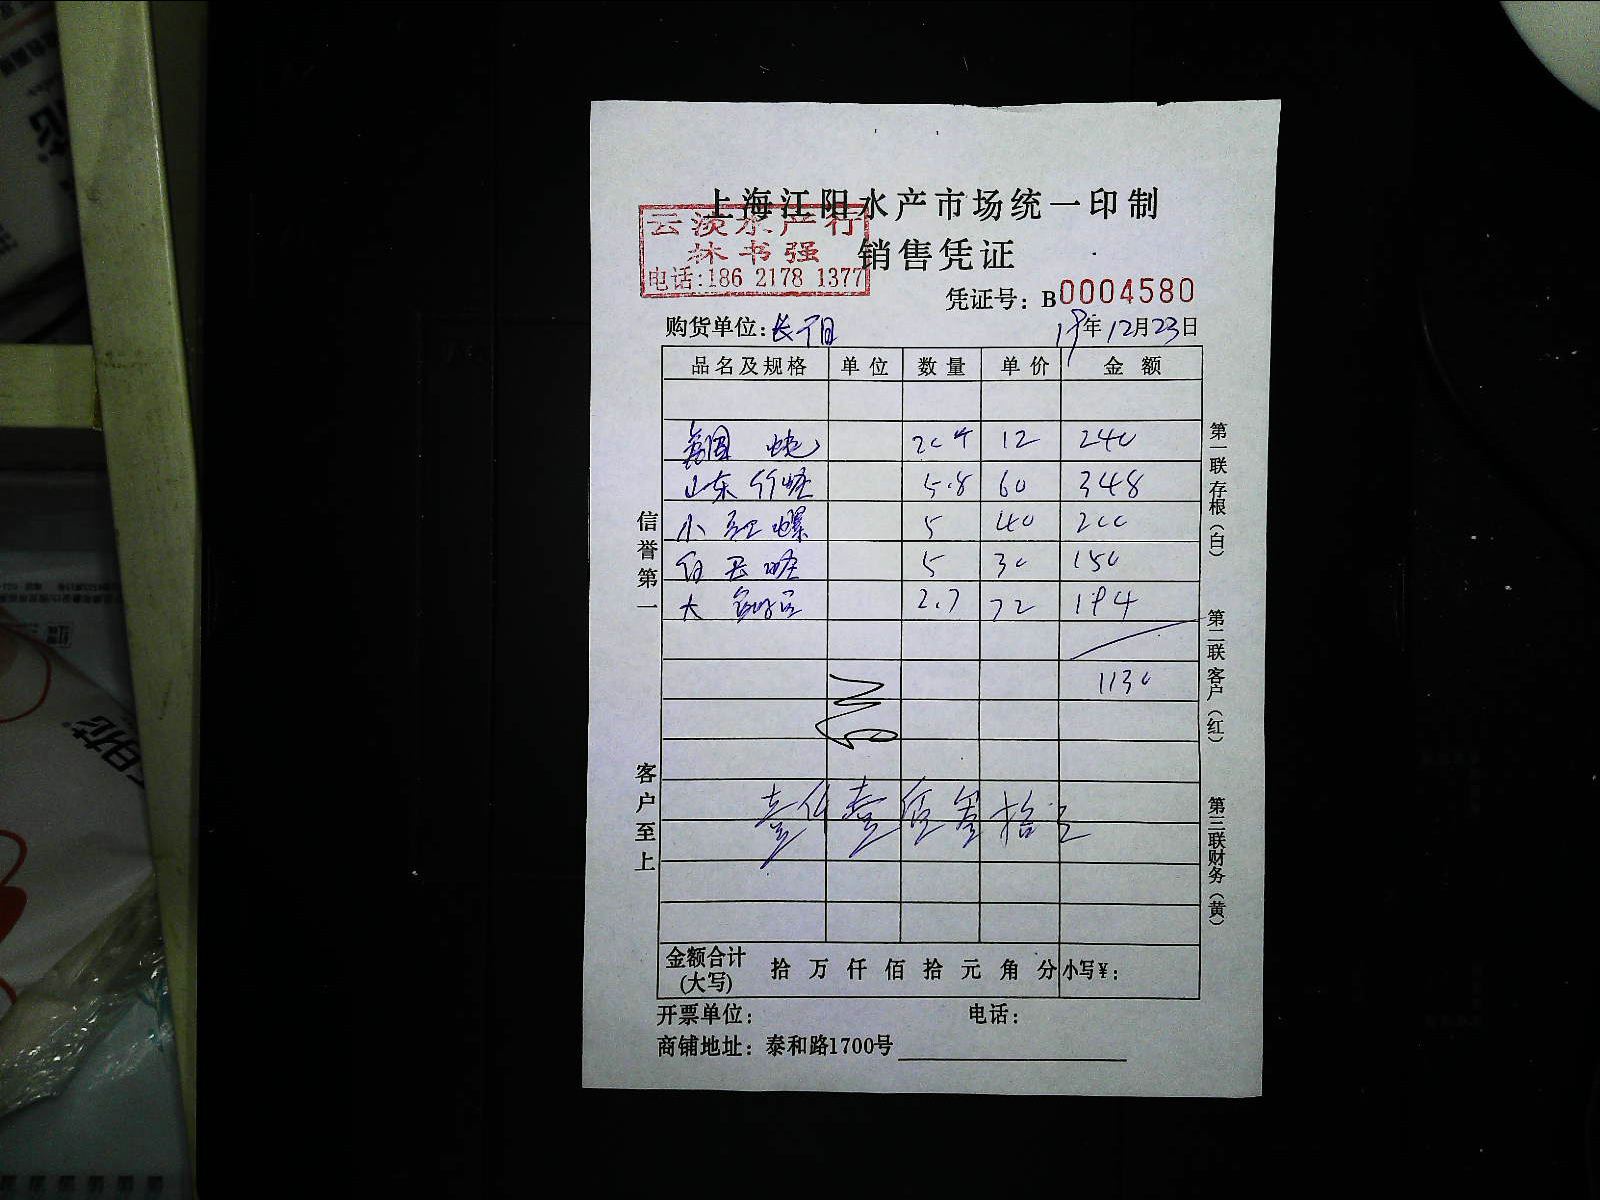 上海江阳水产市场统一印制
云淡水产行
林书强
电话:186 2178 1377
销售凭证
凭证号：B0004580
购货单位:长宁 19年12月23日
品名及规格 单位 数量 单价 金额
12 240
山东竹蛏 5.8 60 348
小红螺 5 40 200
白玉蛏 5 30 150
大 2.7 72 194
1130
壹仟壹佰叁拾元
金额合计(大写) 拾 万 仟 佰 拾 元 角 分 小写¥:
开票单位: 电话:
商铺地址: 泰和路1700号
信誉第一
客户至上
第一联存根(白)
第二联客户(红)
第三联财务(黄)